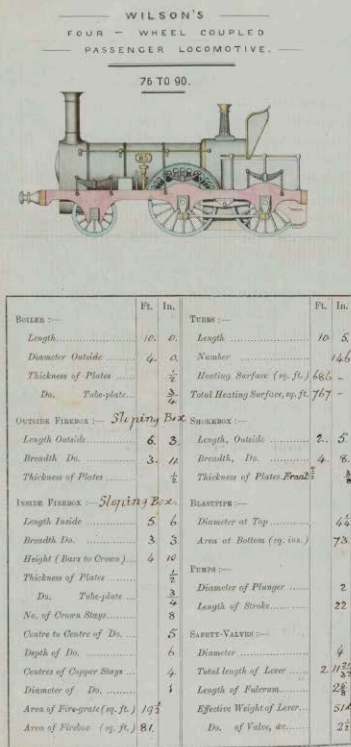 WILSON'S
FOUR - WHEEL COUPLED
PASSENGER LOCOMOTIVE.
76 TO 90.
Ft. In.
BOILER :—
Length 10. 0.
Diameter Outside 4. 0.
Thickness of Plates ½
Do. Tube-plate ¾
OUTSIDE FIREBOX :— Sloping Box
Length Outside 6. 3.
Breadth Do. 3. 11.
Thickness of Plates ½
INSIDE FIREBOX :— Sloping Box.
Length Inside 5 6
Breadth Do. 3 3
Height (Bars to Crown) 4 10
Thickness of Plates ½
Do. Tube-plate ¾
No. of Crown Stays 8
Centre to Centre of Do. 5
Depth of Do. 6
Centres of Copper Stays 4.
Diameter of Do. 1
Area of Fire-grate (sq. ft.) 19½
Area of Firebox (sq. ft.) 81.
Ft. In.
TUBES :—
Length 10 5.
Number 146
Heating Surface (sq. ft.) 686 -
Total Heating Surface, sq. ft. 767 -
SMOKEBOX :—
Length, Outside 2. 5.
Breadth, Do. 4. 8.
Thickness of Plates Front
BLASTPIPE :—
Diameter at Top
Area at Bottom (sq. ins.) 73.
PUMPS :—
Diameter of Plunger 2
Length of Stroke 22
SAFETY-VALVES :—
Diameter 4
Total length of Lever 2 11
Length of Fulcrum
Effective Weight of Lever
Do. of Valve, &c.